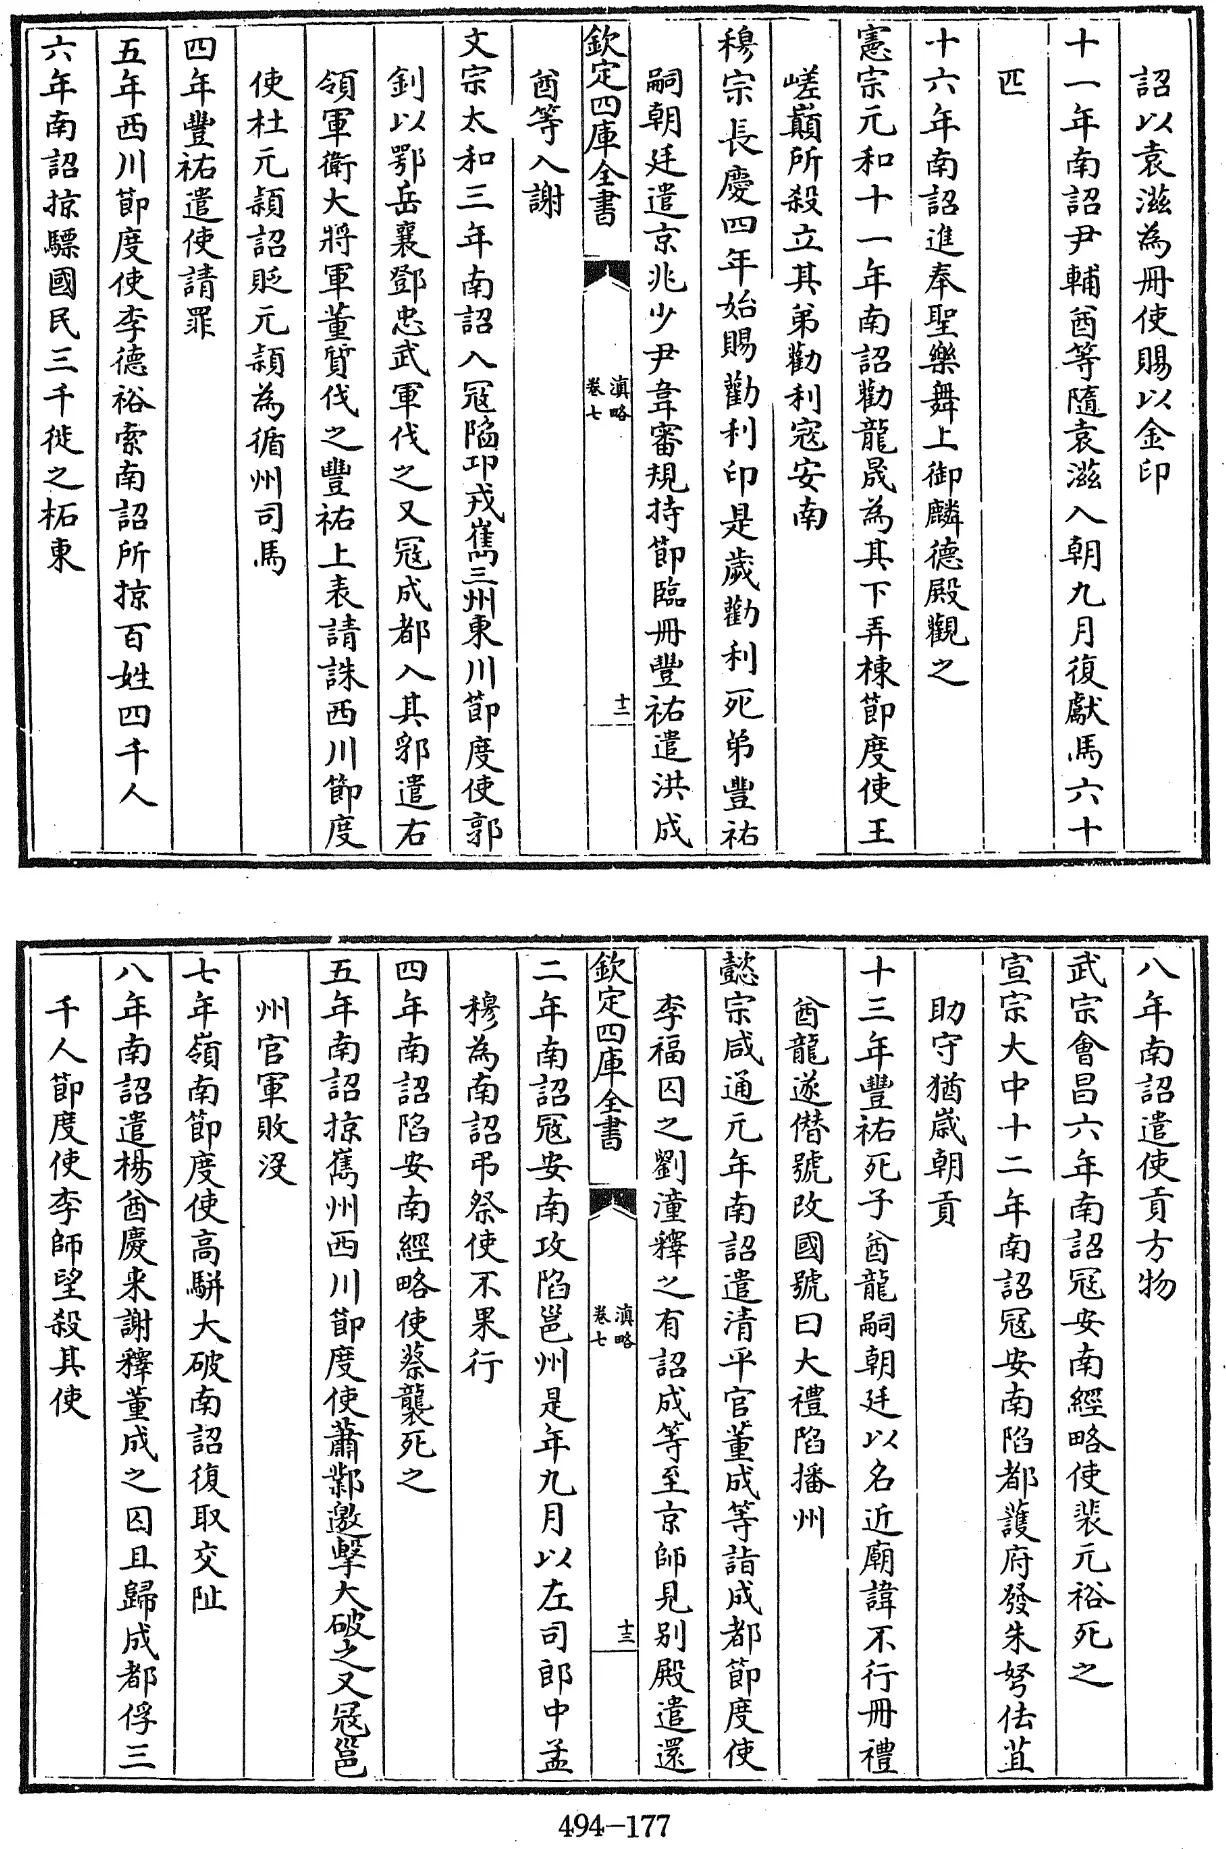 詔以袁滋為冊使賜以金印
十一年南詔尹輔酋等隨袁滋入朝九月復獻馬六十
匹
十六年南詔進奉聖樂舞上御麟德殿觀之
憲宗元和十一年南詔勸龍晟為其下弄棟節度使王
嵯巔所殺立其弟勸利寇安南
穆宗長慶四年始賜勸利印是歲勸利死弟豐祐
嗣朝廷遣京兆少尹韋審規持節臨冊豐祐遣洪成
欽定四庫全書
滇略
卷七
十二
酋等入謝
文宗太和三年南詔入寇陷邛戎巂三州東川節度使郭
釗以鄂岳襄鄧忠武軍伐之又寇成都入其郛遣右
領軍衛大將軍董質伐之豐祐上表請誅西川節度
使杜元頴詔貶元頴為循州司馬
四年豐祐遣使請罪
五年西川節度使李德裕索南詔所掠百姓四千人
六年南詔掠驃國民三千徙之柘東
八年南詔遣使貢方物
武宗會昌六年南詔寇安南經略使裴元裕死之
宣宗大中十二年南詔寇安南陷都護府發朱弩佉苴
助守猶歳朝貢
十三年豐祐死子酋龍嗣朝廷以名近廟諱不行冊禮
酋龍遂僭號改國號曰大禮陷播州
懿宗咸通元年南詔遣清平官董成等詣成都節度使
李福囚之劉潼釋之有詔成等至京師見别殿遣還
欽定四庫全書
滇略
卷七
十三
二年南詔寇安南攻陷邕州是年九月以左司郎中孟
穆為南詔弔祭使不果行
四年南詔陷安南經略使蔡襲死之
五年南詔掠巂州西川節度使蕭鄴邀擊大破之又寇邕
州官軍敗沒
七年嶺南節度使高駢大破南詔復取交阯
八年南詔遣楊酋慶来謝釋董成之囚且歸成都俘三
千人節度使李師望殺其使
494-177